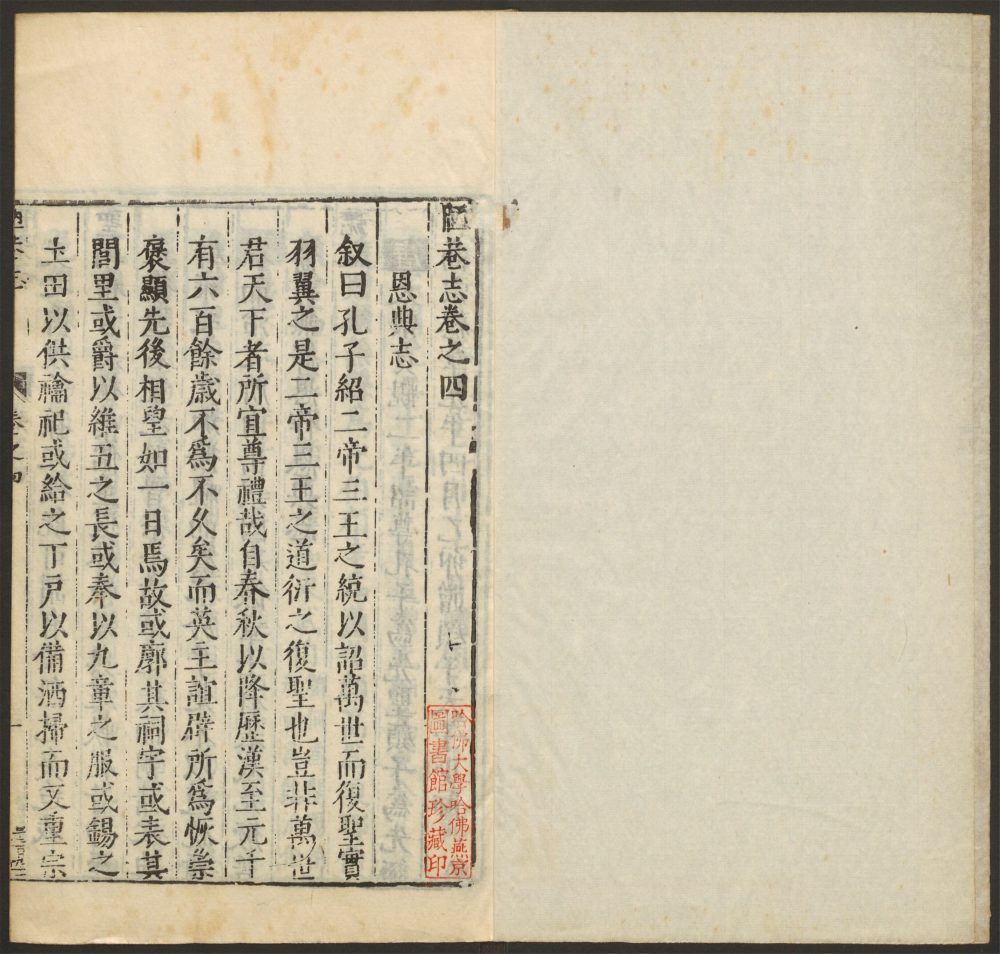 陋巷志卷之四
恩典志
叙曰孔子紹二帝三王之統以詔萬世而復聖實
羽翼之是二帝三王之道衍之復聖也豈非萬世
君天下者所宜尊禮哉自春秋以降歷漢至元千
有六百餘歲不爲不久矣而英主誼辟所爲恢崇
襃顯先後相望如一日焉故或廓其祠宇或表其
閭里或爵以維五之長或奉以九章之服或錫之
土田以供禴祀或給之丁戶以備洒掃而又重宗
卷之四
哈佛大學哈佛燕京
圖書館珍藏印